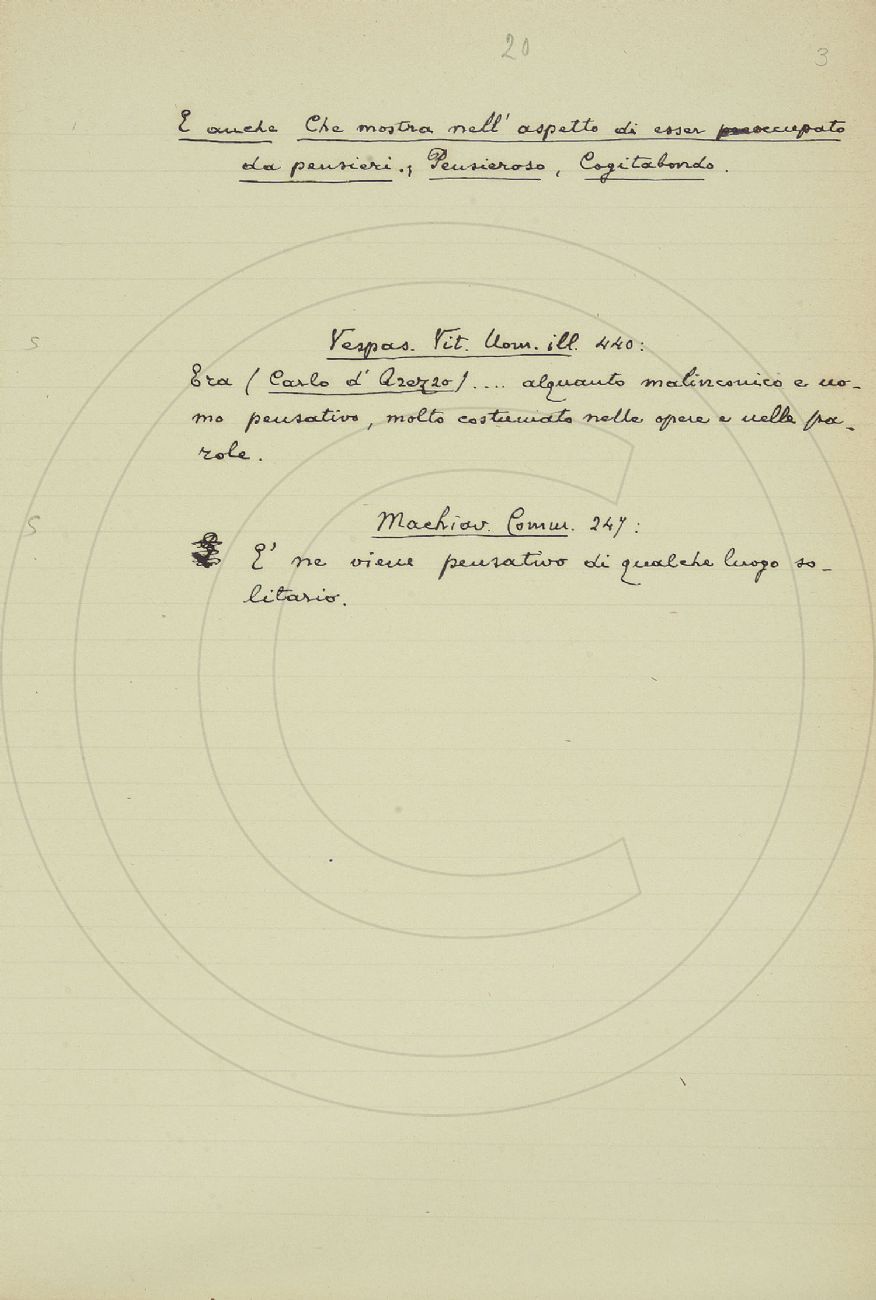 20
3
E anche Che mostra nell' aspetto di esser preoccupato
da pensieri.; Pensieroso, Cogitabondo.
S
Vespas. Vit. Uom. ill. 440:
Era (Carlo d' Arezzo).... alquanto malinconico e uo-
mo pensativo, molto costumato nelle opere e nelle pa-
role.
S
Machiav. Comm. 247:
E' ne viene pensativo di qualche luogo so-
litario.